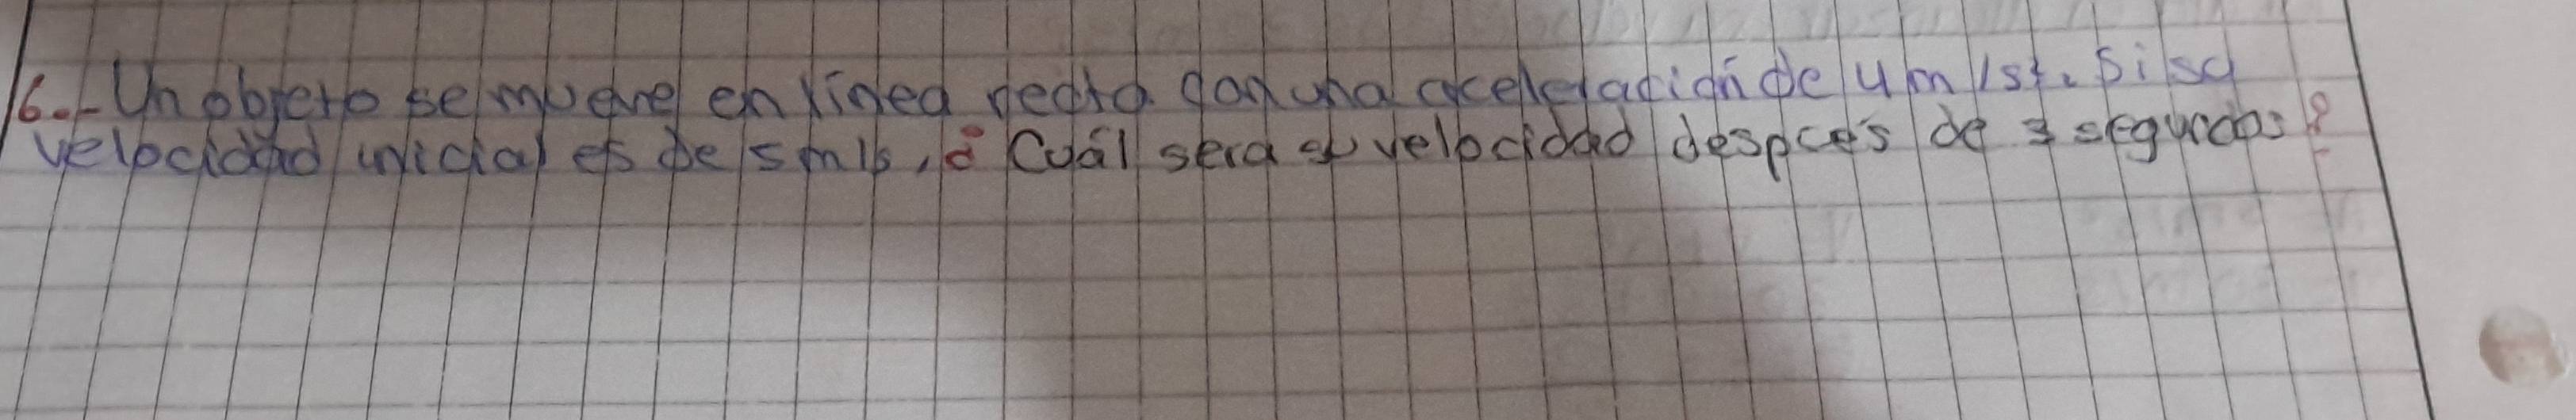 6.- Un objeto se mueve en línea recta con una aceleración de 4 m/s². Si su
velocidad inicial es de 5 m/s, ¿Cuál sera su velocidad despues de 3 segundos?